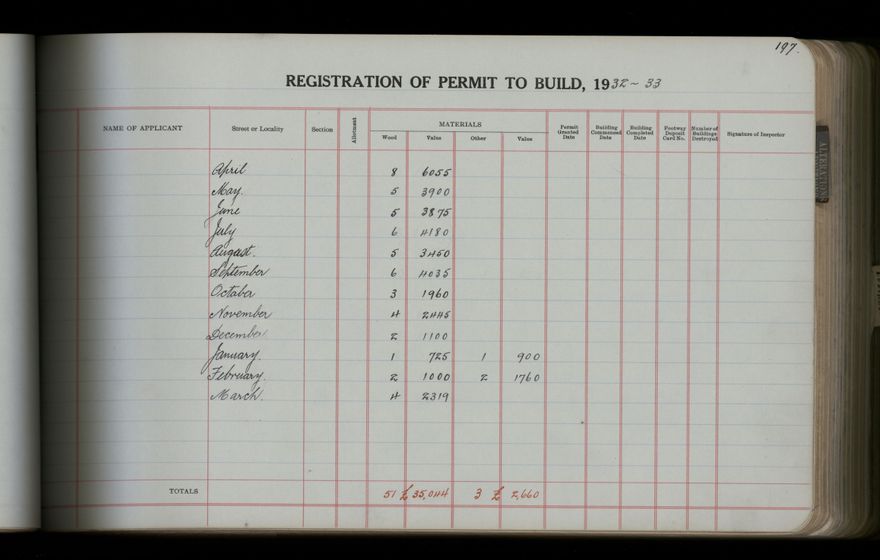 197.
REGISTRATION OF PERMIT TO BUILD, 1932~33
NAME OF APPLICANT Street or Locality Section Allotment MATERIALS Permit Granted Date Building Commenced Date Building Completed Date Footway Deposit Card No. Number of Buildings Destroyed Signature of Inspector
Wood Value Other Value
April 8 6055
May. 5 3900
June 5 3875
July 6 4180
August. 5 3450
September 6 4035
October 3 1960
November 4 2445
December. 2 1100
January. 1 725 1 900
February. 2 1000 2 1760
March. 4 2319
TOTALS 51 £35,044 3 £2,660
ALTERATIONS